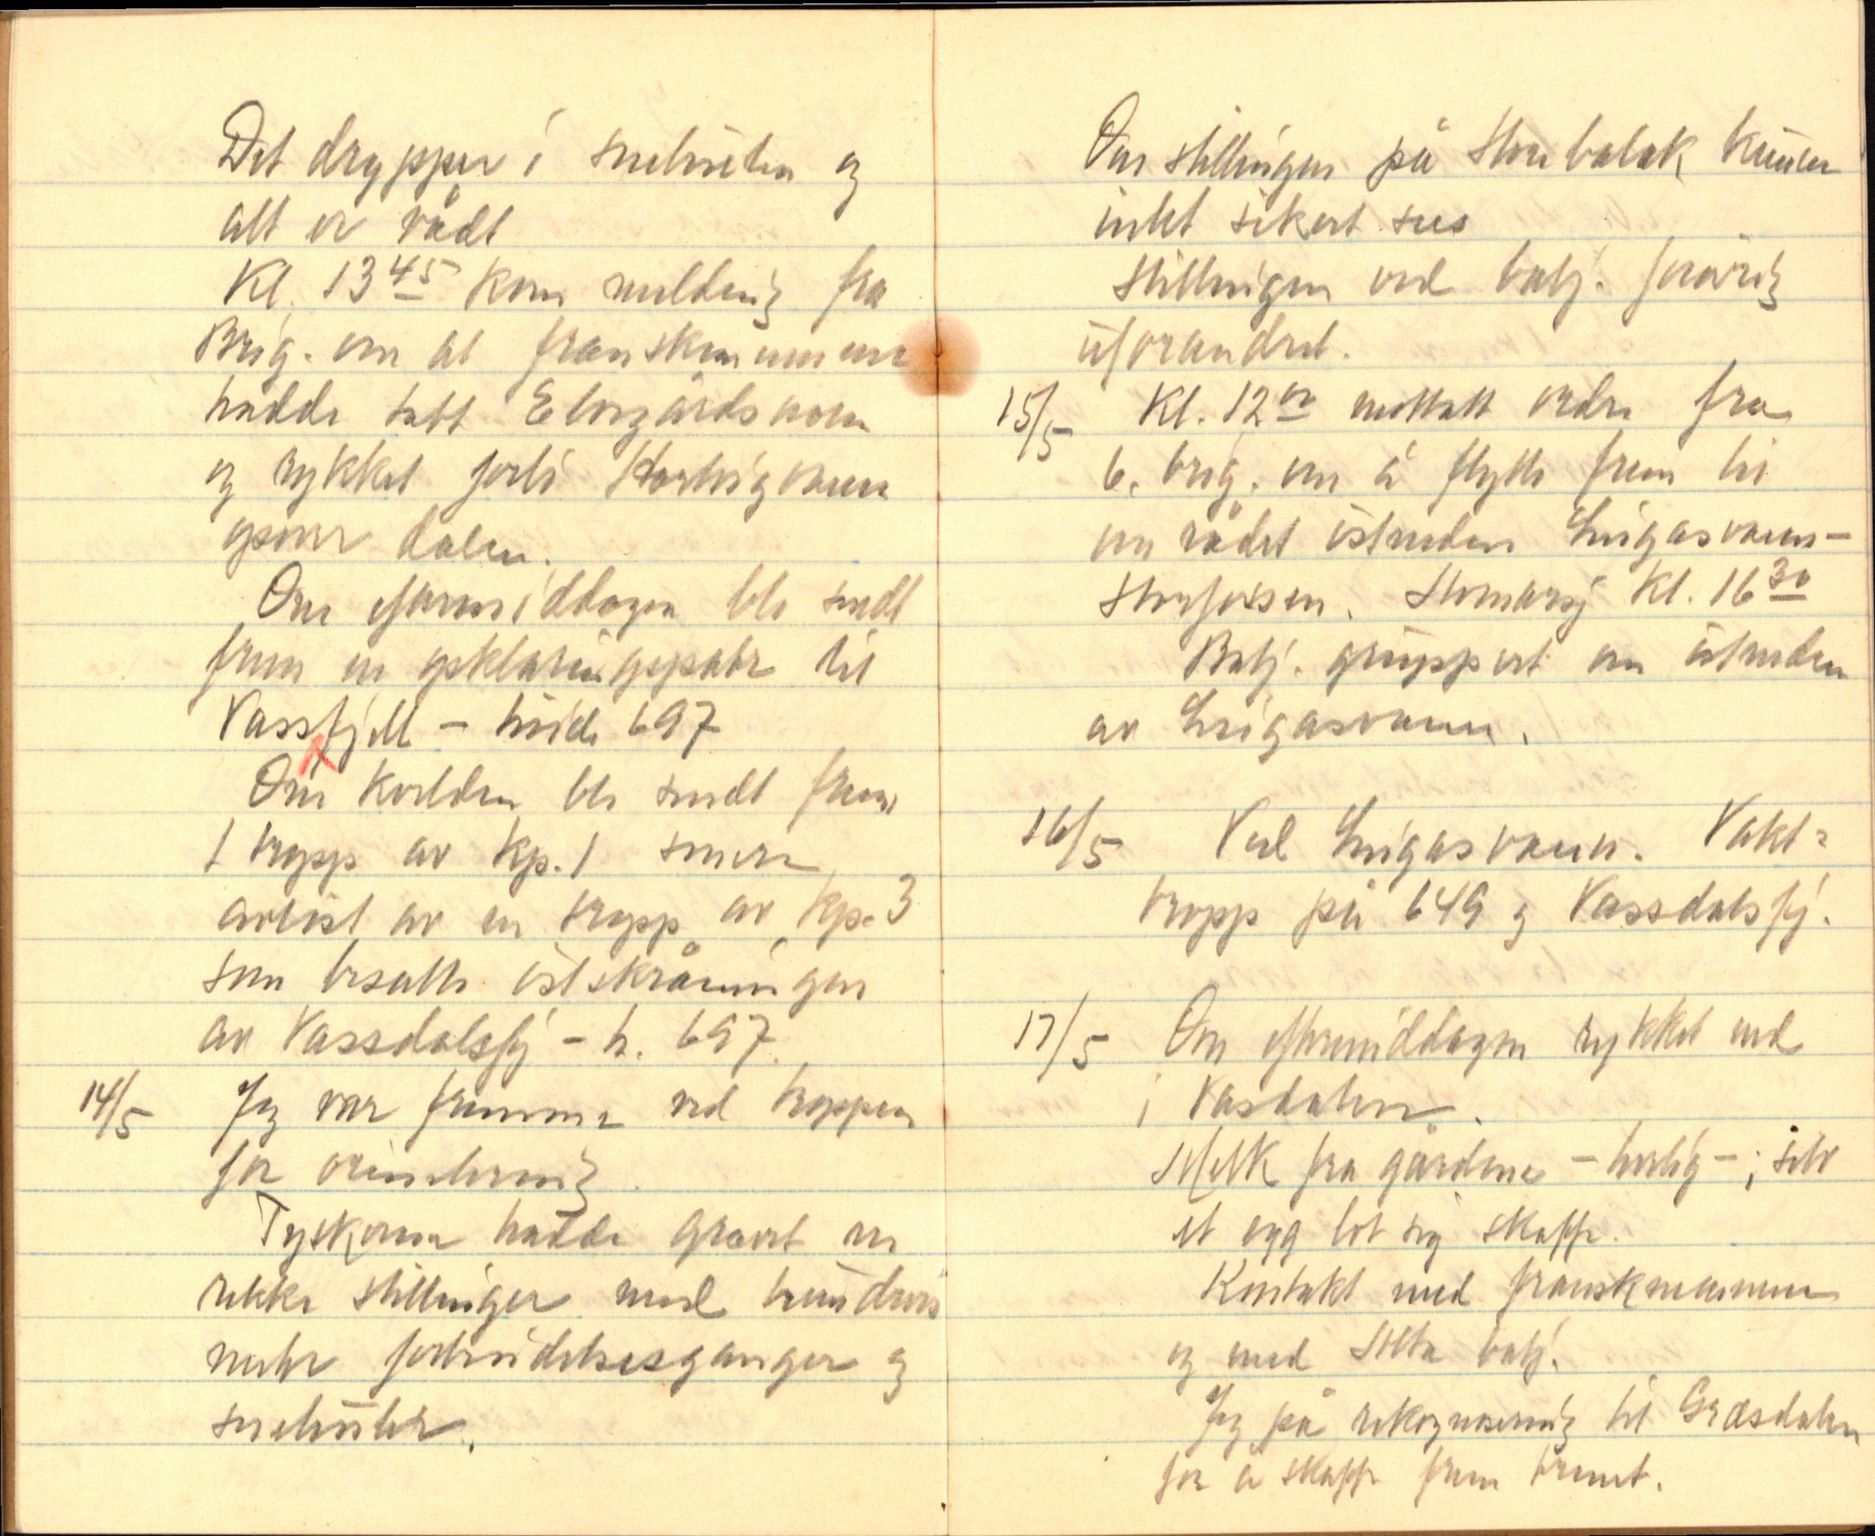 Det drypper i snehulen og
alt er rådt
Kl. 13 45 kom melding fra
Brig. om at franskmennene
hadde tatt Elvegårdsmoen
og rykket forbi Hartvigvann
opover dalen.
Om eftermiddagen ble sendt
frem en opklaringspatr til
Vassfjell – høide 697
Om kvelden ble sendt frem
1 tropp av kp. 1 senere
avløst av en tropp av kp. 3
som besatte østskråningen
av Vassdalsfj – h. 697.
14/5 Jeg var fremme ved troppen
for orientering.
Tyskerne hadde gravet en
rekke stillinger med hundrevis
meter forbindelsesganger og
snehuler.
Om stillingen på Storebalak kunne
intet sikert sees
Stillingen ved batj. forøvrig
uforandret.
15/5 Kl. 12 00 mottatt ordre fra
6. brig. om å flytte frem til
området østenden Lingasvann –
Storfossen. Stormarsj kl. 16 30
Batj. gruppert om østenden
av Lingasvann.
16/5 Ved Lingasvann. Vakt=
tropp på 649 og Vassdalsfj.
17/5 Om eftermiddagen rykket ned
i Vasdalen.
Melk fra gårdene – herlig – ; selv
et egg lot sig skaffe.
Kontakt med franskmennene
og med Alta batj.
Jeg på rekognosering til Græsdalen
for å skaffe frem trenet.